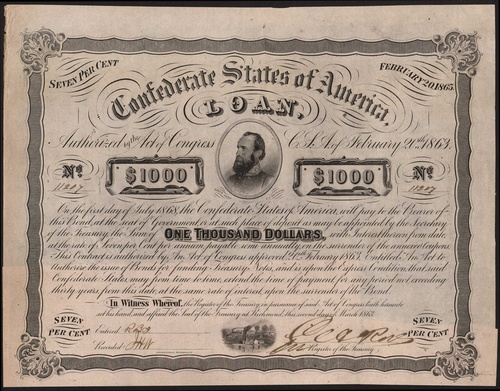 SEVEN PER CENT
FEBRUARY 20, 1863.
Confederate States of America,
LOAN,
Authorized by the Act of Congress C.S.A. of February 20th 1863.
No. 11207 $1000 $1000 No. 11207
On the first day of July 1868, the Confederate States of America, will pay to the Bearer of
this Bond, at the seat of Government or at such place of deposit as may be appointed by the Secretary
of the Treasury, the Sum of ONE THOUSAND DOLLARS, with Interest thereon, from date
at the rate of Seven per Cent per annum payable semi annually on the surrender of the annexed Coupons
This Contract is authorized by An Act of Congress approved 20th February 1863, Entitled An Act to
Authorize the issue of Bonds for funding Treasury Notes, and is upon the Express Condition that said
Confederate States may from time to time, extend the time of payment for any period not exceeding
thirty years from this date at the same rate of interest, upon the surrender of this Bond.
In Witness Whereof, the Register of the Treasury, in pursuance of said Act of Congress, hath hereunto
set his hand, and affixed the Seal of the Treasury at Richmond, this second day of March 1863.
SEVEN PER CENT
Entered
Recorded
Register of the Treasury
SEVEN PER CENT